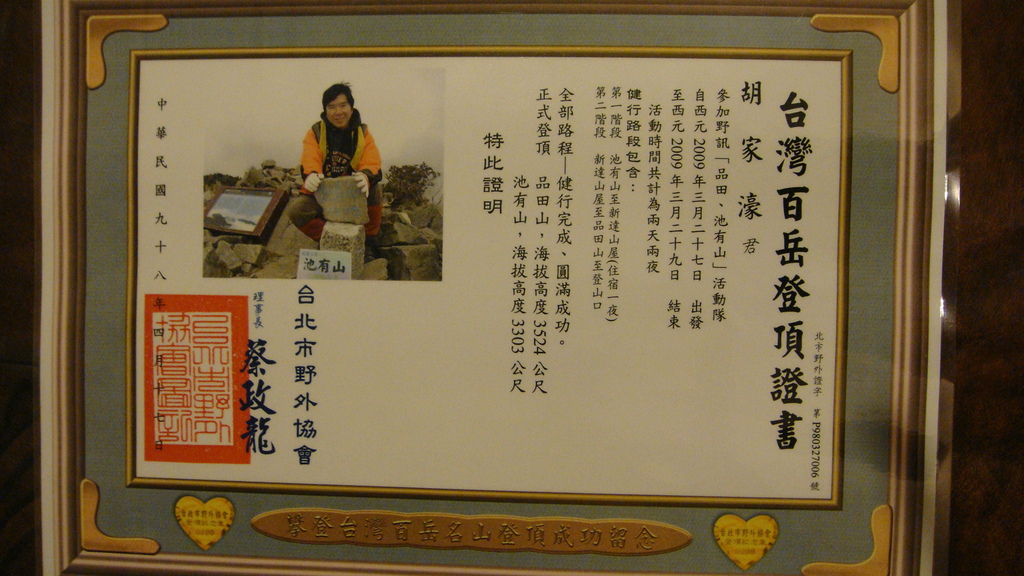 台灣百岳登頂證書
北市野外證字 第 P980327006 號
胡家濠 君
參加野訊「品田、池有山」活動隊
自西元 2009 年三月二十七日 出發
至西元 2009 年三月二十九日 結束
活動時間共計為兩天兩夜
健行路段包含：
第一階段 池有山至新達山屋(住宿一夜)
第二階段 新達山屋至品田山至登山口
全部路程—健行完成、圓滿成功。
正式登頂 品田山，海拔高度 3524 公尺
池有山，海拔高度 3303 公尺
特此證明
池有山
台北市野外協會
理事長 蔡政龍
中華民國九十八年四月十七日
攀登台灣百岳名山登頂成功留念